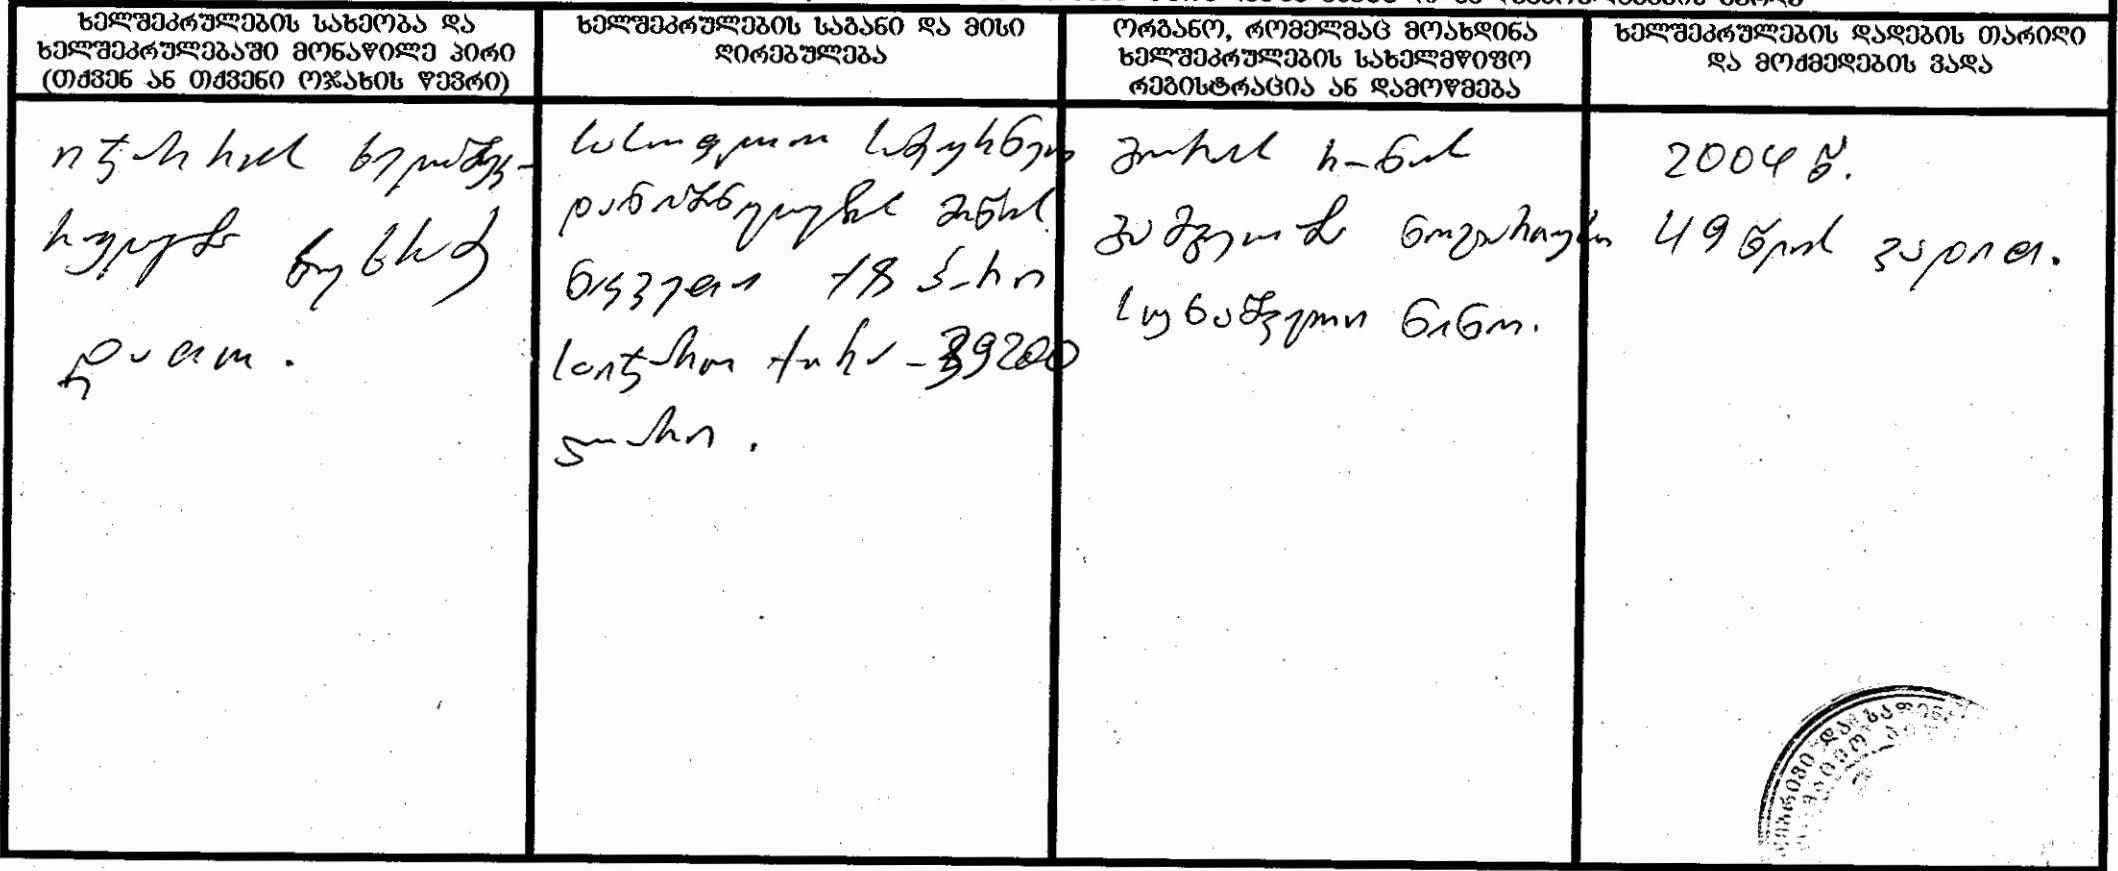 ხელშეკრულების სახეობა და
ხელშეკრულებაში მონაწილე პირი
(თქვენ ან თქვენი ოჯახის წევრი)
ხელშეკრულების საგანი და მისი
ღირებულება
ორგანო, რომელმაც მოახდინა
ხელშეკრულების სახელმწიფო
რეგისტრაცია ან დამოწმება
ხელშეკრულების დადების თარიღი
და მოქმედების ვადა
იჯარის ხელშეკ-
რულება
დათო.
სასოფლო სამეურნეო
დანიშნულების მიწის
ნაკვეთი 78 ჰ-რი
საიჯარო ქირა - 39200
ლარი.
გორის რ-ნის
ნოტარიუსი
ნინო.
2004 წ.
49 წლის ვადით.